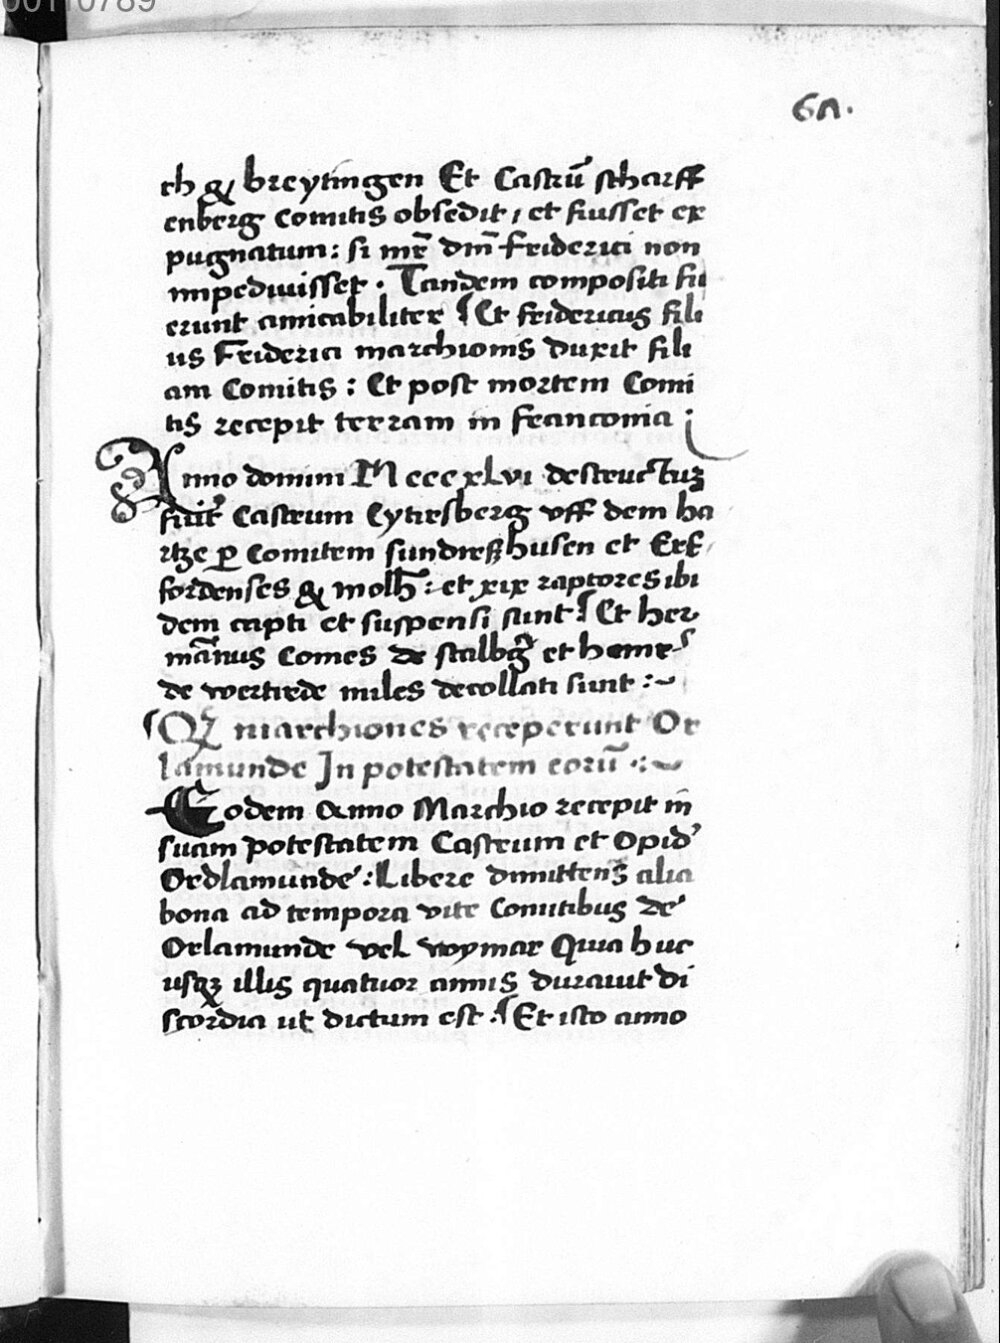 00110789
67.
ch & breytingen Et Castrū scharff
enberg comitis obsedit, et fuisset ex
pugnatum: si mr̄e dm̄ Friderici non
impediuisset. Tandem compositi fu
erunt amicabiliter Et fridericus fili
us Friderici marchionis duxit fili
am Comitis: Et post mortem Comi
tis recepit terram in franconia
Anno domini M cccxLvi destructuʒ
fuit castrum Cytirsberg vff dem ha
rtze ꝑ Comitem sundreßhusen et Erf
fordenses & molh̄: et xix raptores ibi
dem capti et suspensi sunt Et her
mānus Comes de stalbg̃ et henr
de wertirde miles decollati sunt:~
Qꝫ marchiones receperunt Or
lamunde In potestatem eorū
Eodem Anno Marchio recepit in
suam potestatem Castrum et Opid'
Ordlamunde: Libere dimittens alia
bona ad tempora vite Comitibus de
Orlamunde vel woymar Quia huc
usqꝫ illis quatuor annis durauit di
scordia ut dictum est. Et isto anno